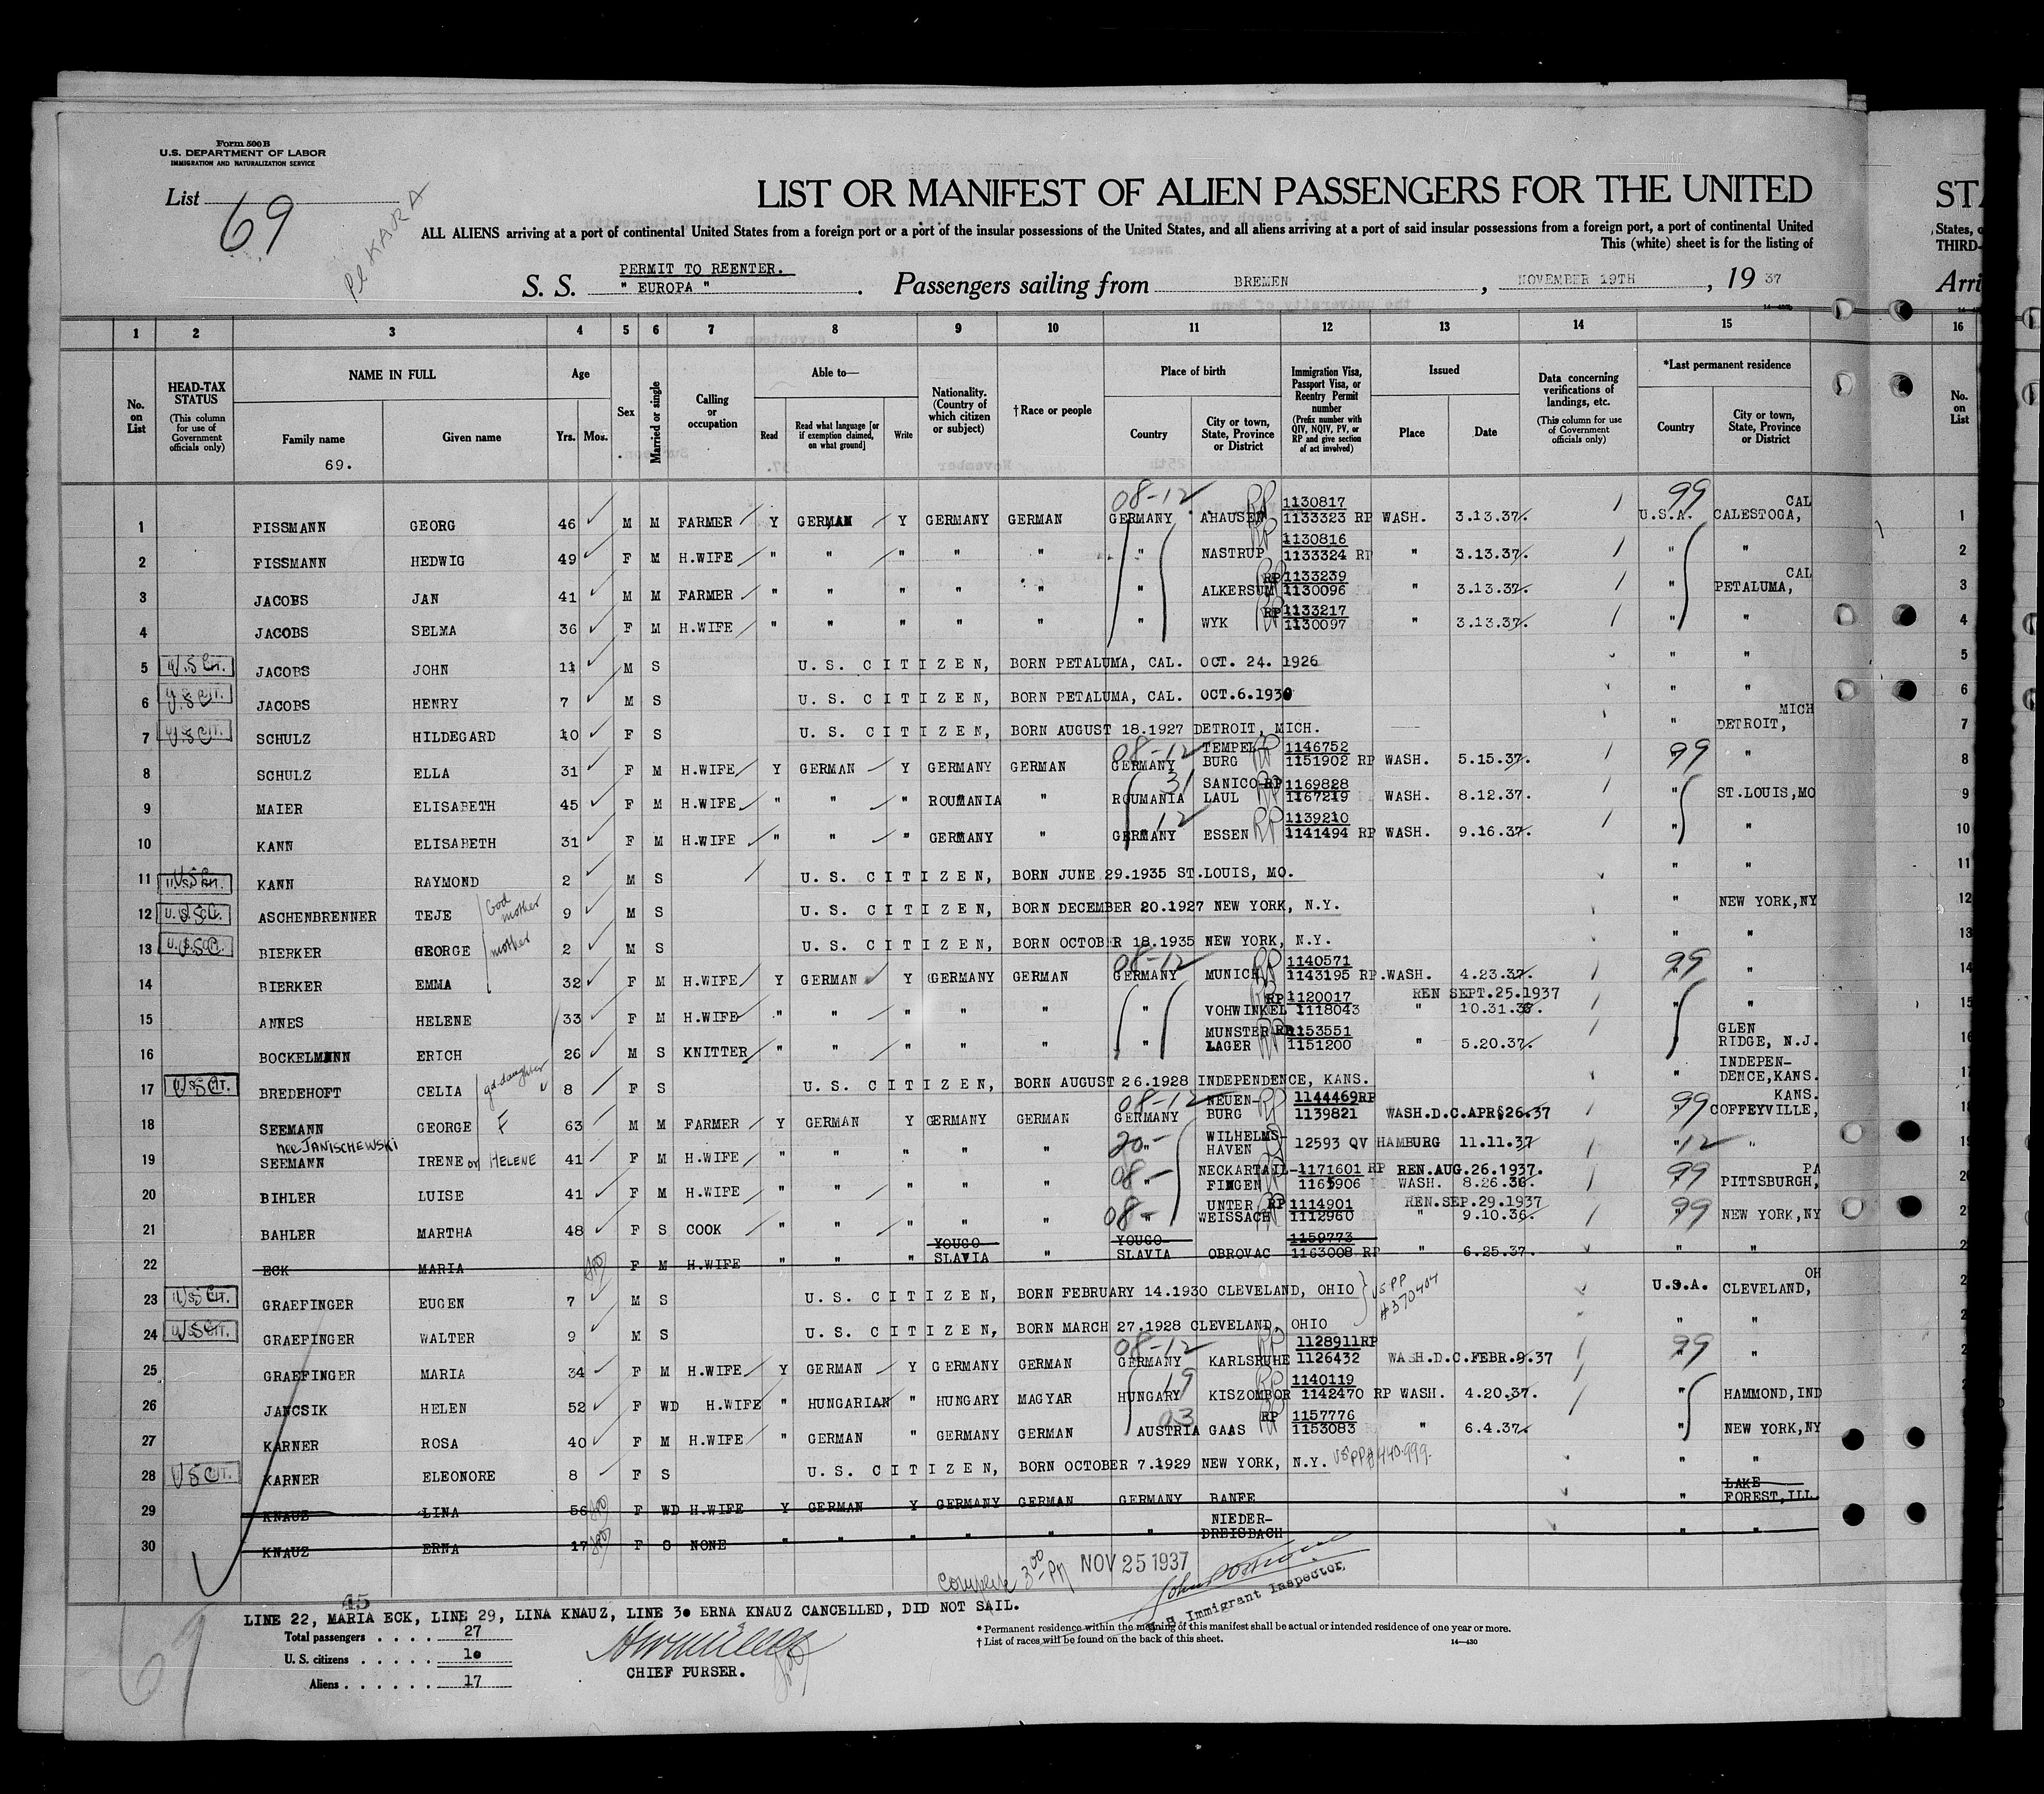 Form 500B
U.S. DEPARTMENT OF LABOR
IMMIGRATION AND NATURALIZATION SERVICE
List 69
LIST OR MANIFEST OF ALIEN PASSENGERS FOR THE UNITED
ST
ALL ALIENS arriving at a port of continental United States from a foreign port or a port of the insular possessions of the United States, and all aliens arriving at a port of said insular possessions from a foreign port, a port of continental United
States,
This (white) sheet is for the listing of
THIRD-
PERMIT TO REENTER.
S. S. " EUROPA " . Passengers sailing from BREMEN , NOVEMBER 19TH , 19 37
Arri
1 2 3 4 5 6 7 8 9 10 11 12 13 14 15 16
No. on List
HEAD-TAX STATUS (This column for use of Government officials only)
NAME IN FULL Family name Given name
69.
Age Yrs. Mos.
Sex
Married or single
Calling or occupation
Able to— Read Read what language [or if exemption claimed, on what ground] Write
Nationality. (Country of which citizen or subject)
†Race or people
Place of birth Country City or town, State, Province or District
Immigration Visa, Passport Visa, or Reentry Permit number (Prefix number with QIV, NQIV, PV, or RP and give section of act involved)
Issued Place Date
Data concerning verifications of landings, etc. (This column for use of Government officials only)
*Last permanent residence Country City or town, State, Province or District
No. on List
08-12 RP 1130817 99 CAL
1 FISSMANN GEORG 46 M M FARMER Y GERMAN Y GERMANY GERMAN GERMANY AHAUSEN 1133323 RP WASH. 3.13.37. U.S.A. CALESTOGA, 1
1130816
2 FISSMANN HEDWIG 49 F M H.WIFE " " " " " " NASTRUP 1133324 RP " 3.13.37. " " 2
RP 1133239 CAL
3 JACOBS JAN 41 M M FARMER " " " " " " ALKERSUM 1130096 " 3.13.37. " PETALUMA, 3
RP 1133217
4 JACOBS SELMA 36 F M H.WIFE " " " " " " WYK 1130097 " 3.13.37. " " 4
5 U.S CIT. JACOBS JOHN 11 M S U. S. C I T I Z E N, BORN PETALUMA, CAL. OCT. 24. 1926 " " 5
6 U S CIT. JACOBS HENRY 7 M S U. S. C I T I Z E N, BORN PETALUMA, CAL. OCT.6.1930 " " 6
MICH
7 U.S CIT. SCHULZ HILDEGARD 10 F S U. S. C I T I Z E N, BORN AUGUST 18.1927 DETROIT, MICH. " DETROIT, 7
08-12 TEMPEL- RP 1146752 99
8 SCHULZ ELLA 31 F M H.WIFE Y GERMAN Y GERMANY GERMAN GERMANY BURG 1151902 RP WASH. 5.15.37. " " 8
31 SANICO- RP 1169828
9 MAIER ELISABETH 45 F M H.WIFE " " " ROUMANIA " ROUMANIA LAUL 1167219 WASH. 8.12.37. " ST.LOUIS,MO 9
12 RP 1139210
10 KANN ELISABETH 31 F M H.WIFE " " " GERMANY " GERMANY ESSEN 1141494 RP WASH. 9.16.37. " " 10
11 U.S CIT. KANN RAYMOND 2 M S U. S. C I T I Z E N, BORN JUNE 29.1935 ST.LOUIS, MO. " " 11
12 U.S. CIT. ASCHENBRENNER TEJE God mother 9 M S U. S. C I T I Z E N, BORN DECEMBER 20.1927 NEW YORK, N.Y. " NEW YORK,NY 12
13 U.S CIT. BIERKER GEORGE mother 2 M S U. S. C I T I Z E N, BORN OCTOBER 18.1935 NEW YORK, N.Y. " " 13
08-12 RP 1140571 99
14 BIERKER EMMA 32 F M H.WIFE Y GERMAN Y GERMANY GERMAN GERMANY MUNICH 1143195 RP.WASH. 4.23.37. " " 14
RP 1120017 REN SEPT.25.1937
15 ANNES HELENE 33 F M H.WIFE " " " " " " VOHWINKEL 1118043 " 10.31.36. " " 15
MUNSTER- RP 1153551 GLEN
16 BOCKELMANN ERICH 26 M S KNITTER " " " " " " LAGER 1151200 " 5.20.37. RIDGE, N.J. 16
INDEPEN-
17 U.S CIT. BREDEHOFT CELIA gd.daughter 8 F S U. S. C I T I Z E N, BORN AUGUST 26.1928 INDEPENDENCE, KANS. " DENCE,KANS. 17
08-12 NEUEN- RP 1144469RP 99 KANS.
18 SEEMANN GEORGE F 63 M M FARMER Y GERMAN Y GERMANY GERMAN GERMANY BURG 1139821 WASH.D.C.APR§26.37 " COFFEYVILLE, 18
nee JANISCHEWSKI 20- WILHELMS-
19 SEEMANN IRENE or HELENE 41 F M H.WIFE " " " " " " HAVEN 12593 QV HAMBURG 11.11.37 " 12 " 19
08- NECKARTAIL- 1171601 RP REN.AUG.26.1937. 99 PA
20 BIHLER LUISE 41 F M H.WIFE " " " " " " FINGEN 1165906 WASH. 8.26.36. " PITTSBURGH, 20
08- UNTER RP 1114901 REN.SEP.29.1937 99
21 BAHLER MARTHA 48 F S COOK " " " " " " WEISSACH 1112960 " 9.10.36. " NEW YORK,NY 21
YOUGO- YOUGO- 1159773
22 ECK MARIA F M H.WIFE " " " SLAVIA " SLAVIA OBROVAC 1163008 RP " 6.25.37. " " 2
OH
23 U.S CIT. GRAEFINGER EUGEN 7 M S U. S. C I T I Z E N, BORN FEBRUARY 14.1930 CLEVELAND, OHIO U.S.A. CLEVELAND, 2
USPP #370404
24 U.S CIT. GRAEFINGER WALTER 9 M S U. S. C I T I Z E N, BORN MARCH 27.1928 CLEVELAND, OHIO " " 2
08-12 RP 1128911RP 99
25 GRAEFINGER MARIA 34 F M H.WIFE Y GERMAN Y GERMANY GERMAN GERMANY KARLSRUHE 1126432 WASH.D.C.FEBR.9.37 " " 2
19 RP 1140119
26 JANCSIK HELEN 52 F WD H.WIFE " HUNGARIAN " HUNGARY MAGYAR HUNGARY KISZOMBOR 1142470 RP WASH. 4.20.37. " HAMMOND,IND 2
03 RP 1157776
27 KARNER ROSA 40 F M H.WIFE " GERMAN " GERMANY GERMAN AUSTRIA GAAS 1153083 " 6.4.37. " NEW YORK,NY 2
28 U S CIT. KARNER ELEONORE 8 F S U. S. C I T I Z E N, BORN OCTOBER 7.1929 NEW YORK, N.Y. USPP#440.999. " " 2
LAKE
29 KNAUZ LINA 56 F WD H.WIFE Y GERMAN Y GERMANY GERMAN GERMANY BANFE " FOREST,ILL. 2
NIEDER-
30 KNAUZ ERNA 17 F S NONE " " " " " " DREISBACH " "
Complete 3⁰⁰ PM NOV 25 1937
U S Immigrant Inspector.
45
LINE 22, MARIA ECK, LINE 29, LINA KNAUZ, LINE 30 ERNA KNAUZ CANCELLED, DID NOT SAIL.
Total passengers . . . . 27
U. S. citizens . . . . . 10
Aliens . . . . . . 17
69
CHIEF PURSER.
* Permanent residence within the meaning of this manifest shall be actual or intended residence of one year or more.
† List of races will be found on the back of this sheet.
14—430